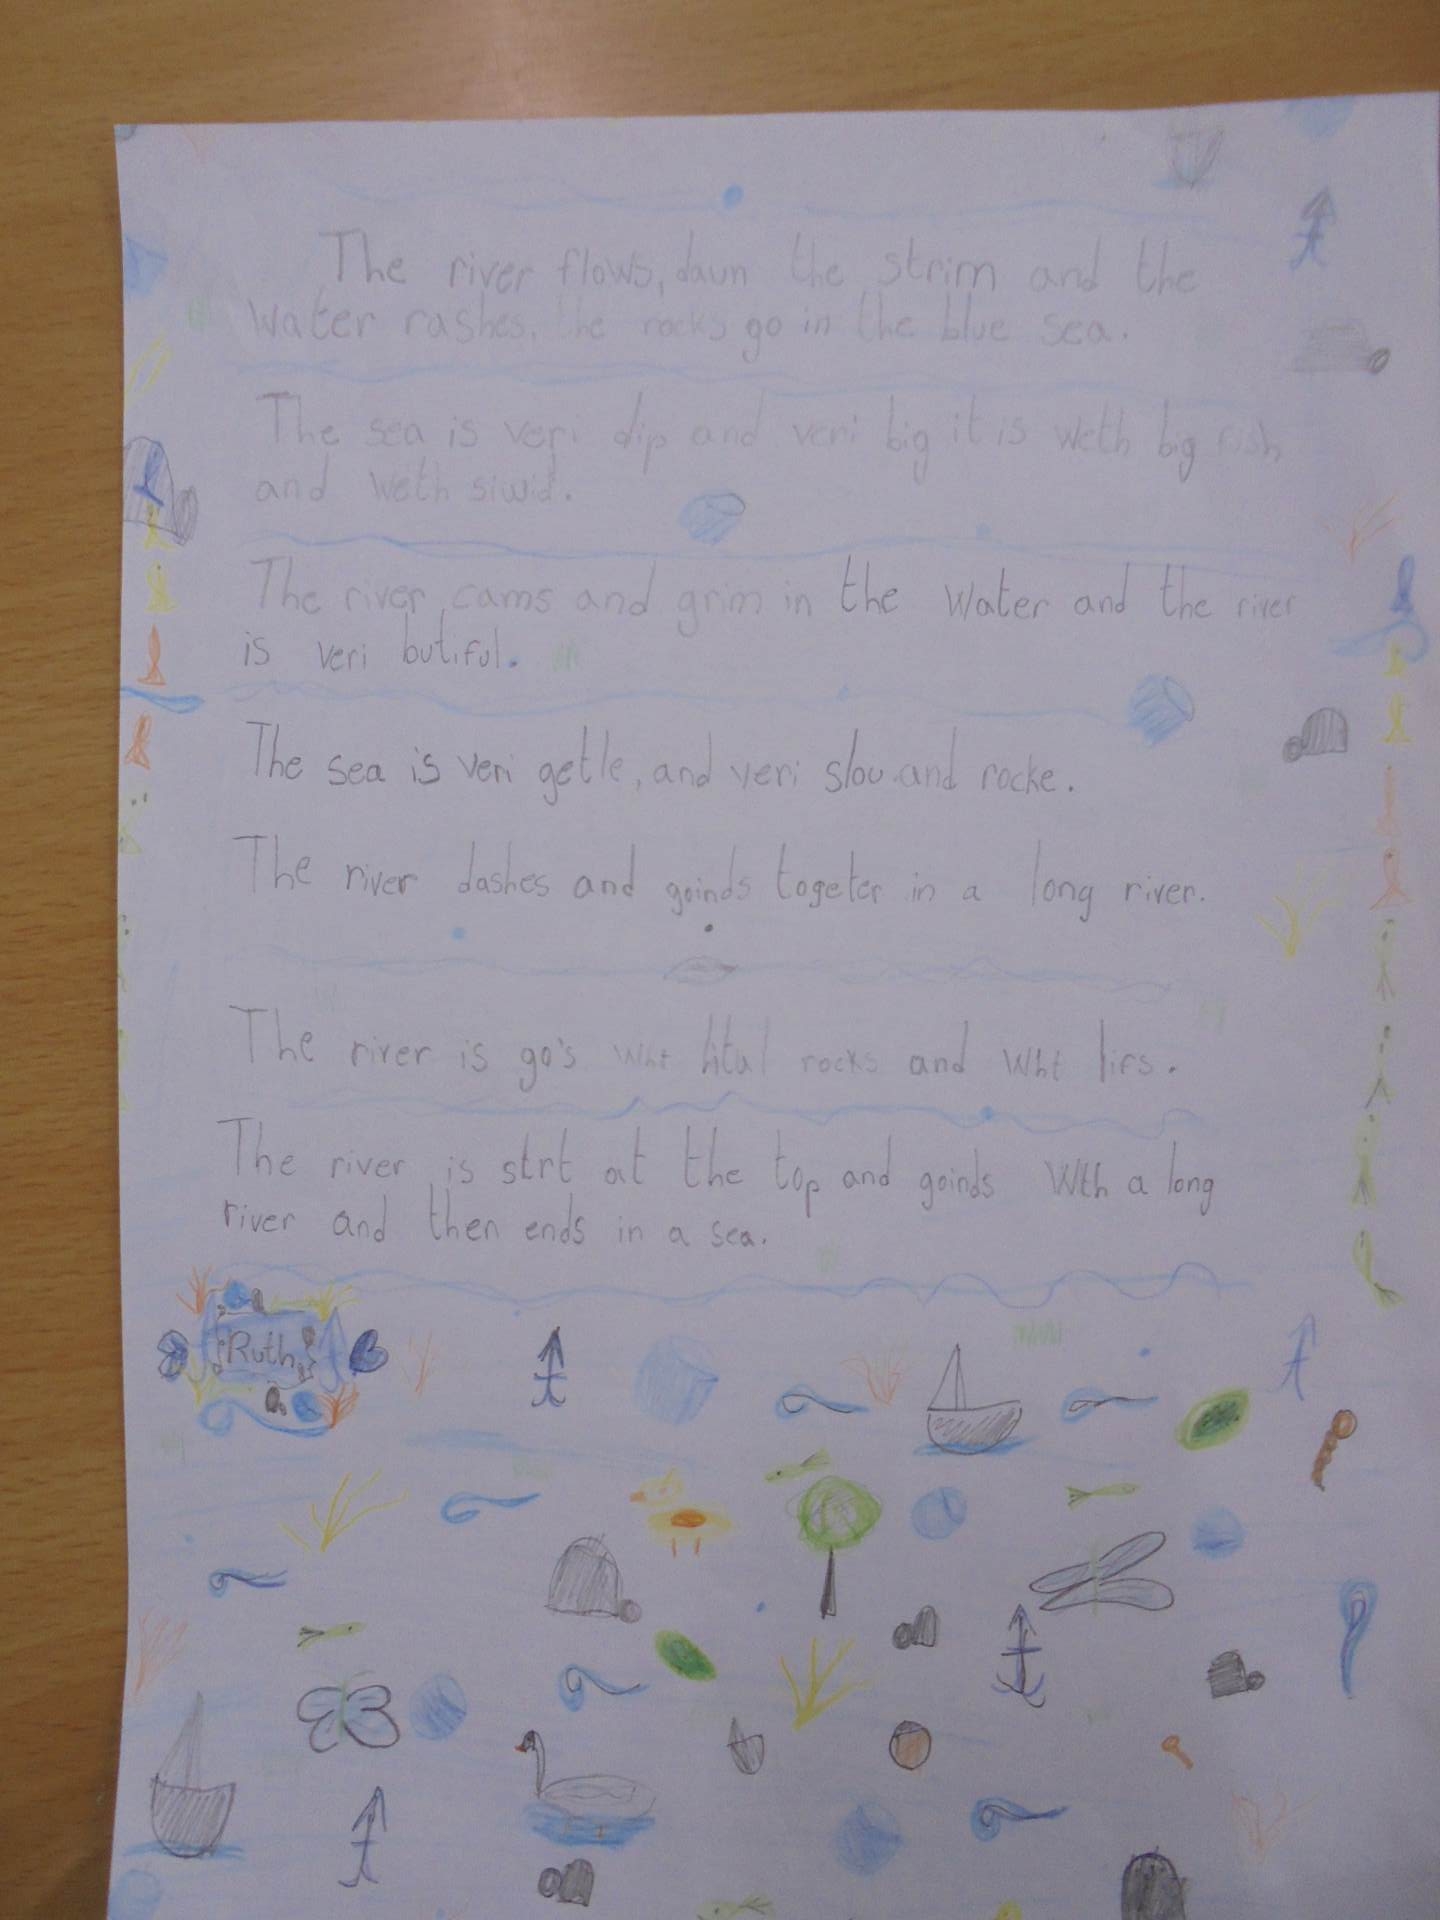 The river flows, daun the strim and the
water rashes, the rocks go in the blue sea.
The sea is veri dip and veri big it is weth big fish
and weth siwid.
The river cams and grim in the water and the river
is veri butiful.
The sea is veri getle, and veri slou and rocke.
The river dashes and goinds togeter in a long river.
The river is go's wht lital rocks and wht lifs.
The river is strt at the top and goinds wth a long
river and then ends in a sea.
Ruth